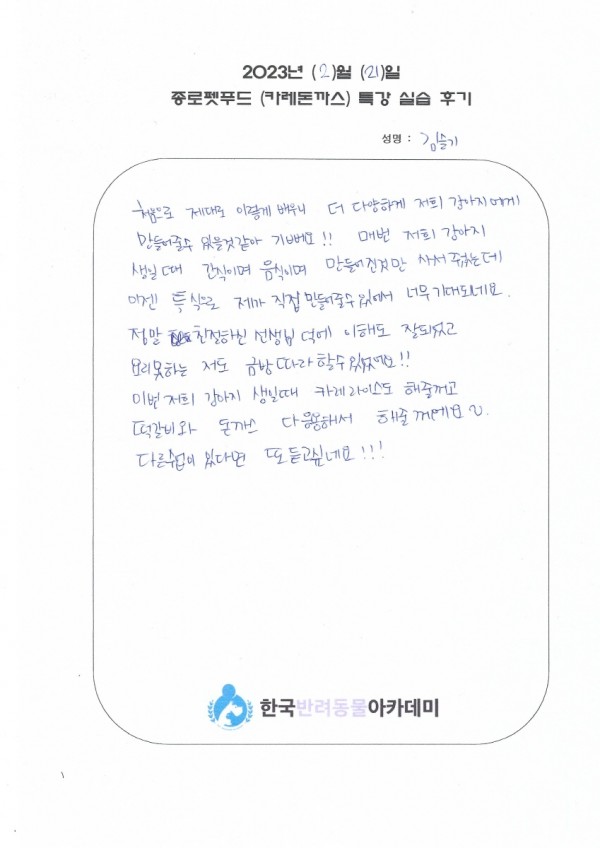 2023년 (2)월 (21)일
종로펫푸드 (카레돈까스) 특강 실습 후기
성명 : 김슬기
처음으로 제대로 이렇게 배우니 더 다양하게 저희 강아지에게
만들어줄수 있을것같아 기뻐요!! 매번 저희 강아지
생일때 간식이며 음식이며 만들어진것만 사서 줬는데
이젠 특식으로 제가 직접 만들어줄수있어서 너무 기대되네요.
정말 친절하신 선생님 덕에 이해도 잘되었고
요리못하는 저도 금방 따라 할수있었어요!!
이번 저희 강아지 생일때 카레라이스도 해줄꺼고
떡갈비와 돈까스 다 응용해서 해줄꺼예요~.
다른수업이 있다면 또 듣고싶네요!!!
한국반려동물아카데미